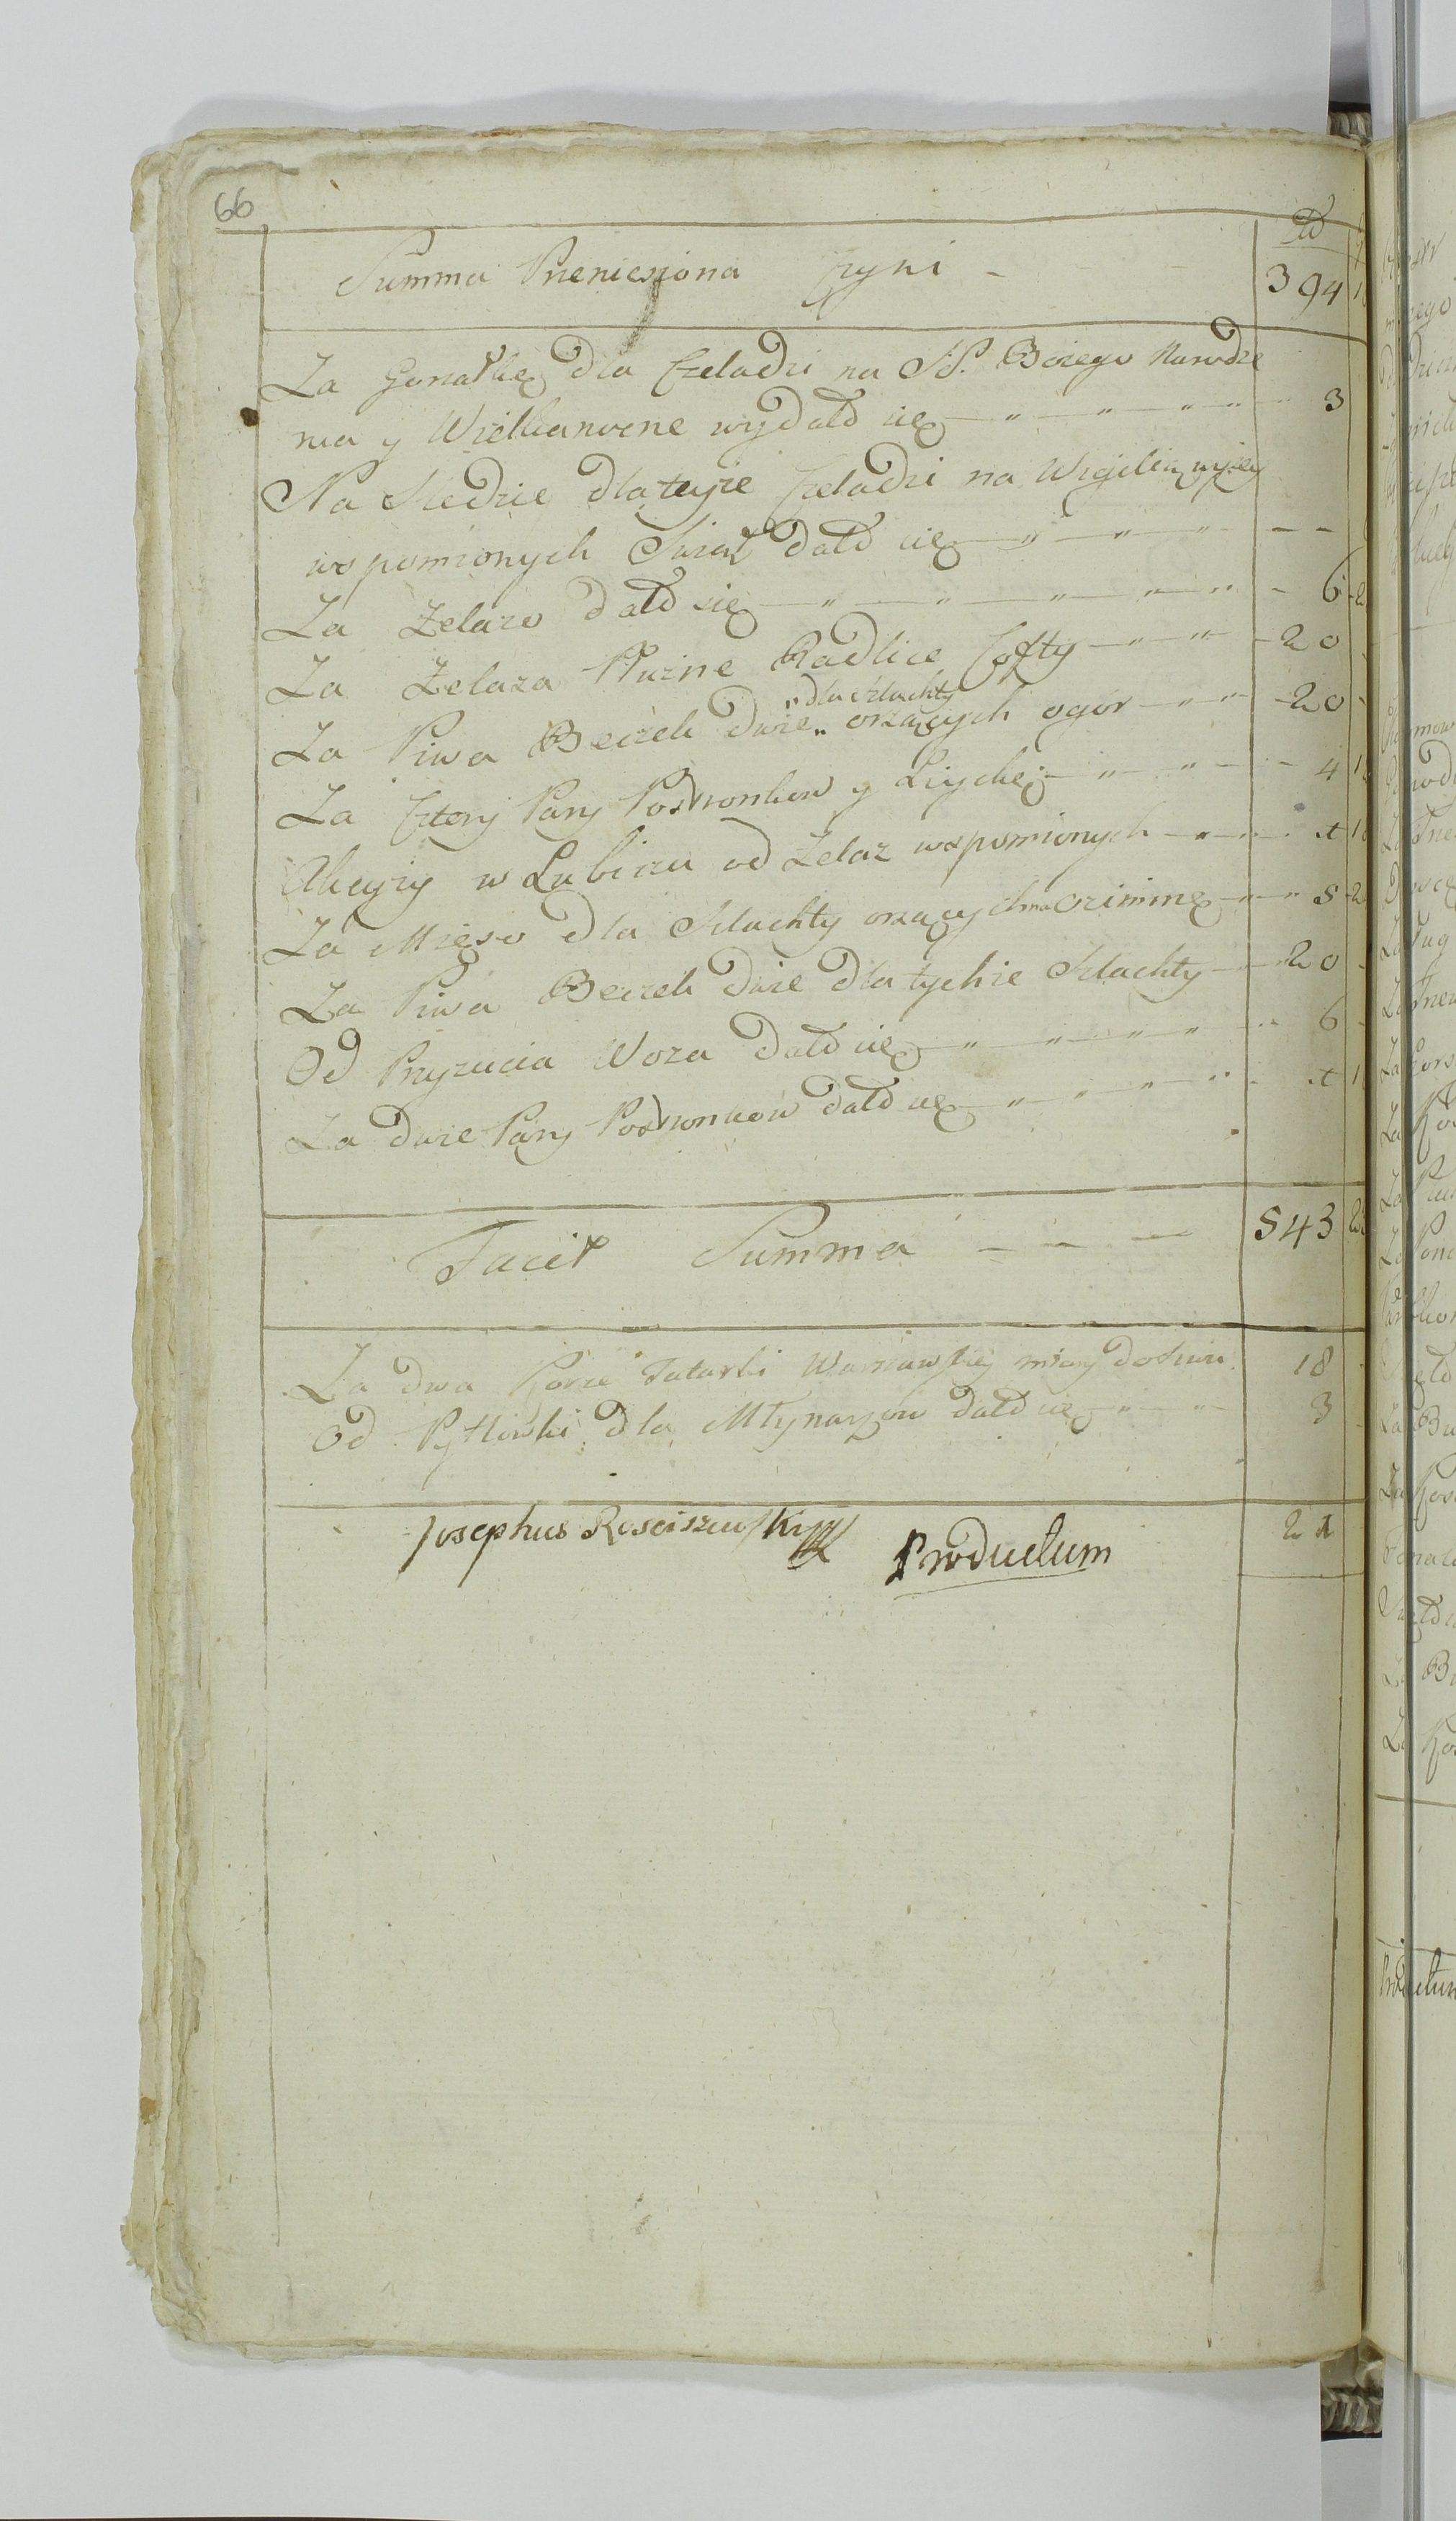 66
Zł
Summa Przeniesiona Czyni - - 394
Za Gorzałkę dla Czeladzi na SS. Bożego Narodze
nia y Wielkanocne wydało się - " - " - " - " - 3
Na Sledzie dla teyże Czeladzi na Wigilią wyżey
wspomionych Swiąt dało się - " - " - " - -
Za Zelazo dało się - " - " - " - " - " - 6
Za Zelaza Płuzne Radlice - " - " - 20
" dla Szlachty
Za Piwa Beczek dwie " orzących ogór - " - " - 20
Za Cztery Pary Postronkow y Liyckę - " - " - 4
Akcyzy w Lubiczu od Zelaz wspomionych - " - "
Za Mięso dla Szlachty orzących na Oziminę - " - " 5
Za Piwa Beczek dwie dla tychże Szlachty - " 20
Od Przyzucia Woza dało się - " - " - " - " - 6
Za dwie Pary Postronkow dało się - " - " - " - "
Facit Summa - - - 543
Za dwa Korce Tatarki Warszawskiey miary do Siewu 18
Od Pytlowki dla Młynarzow dało się - " - " - 3
Josephus Rosciszewski Productum 21